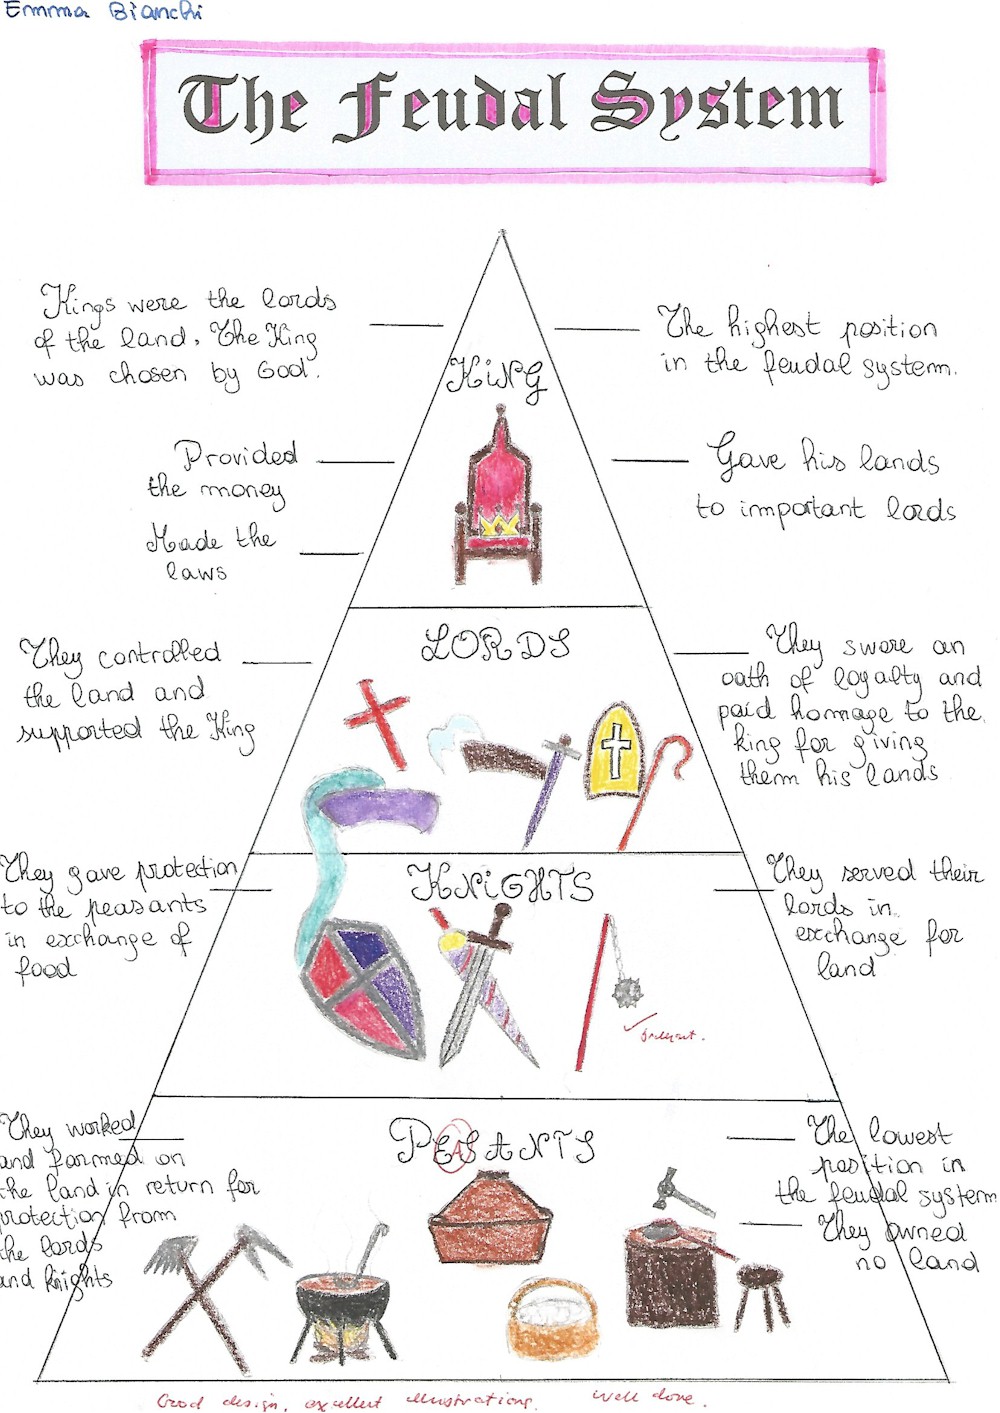 Emma Bianchi
The Feudal System
Kings were the lords
of the land. The King
was chosen by God.
The highest position
in the feudal system.
KiNG
Provided
the money
Gave his lands
to important lords
Made the
laws
LORDS
They controlled
the land and
supported the King
They swore an
oath of loyalty and
paid homage to the
king for giving
them his lands
KNiGHTS
They gave protection
to the peasants
in exchange of
food
They served their
lords in
exchange for
land
PEASANTS
They worked
and farmed on
the land in return for
protection from
the lords
and knights
The lowest
position in
the feudal system
They owned
no land
Good design, excellent illustrations. Well done.